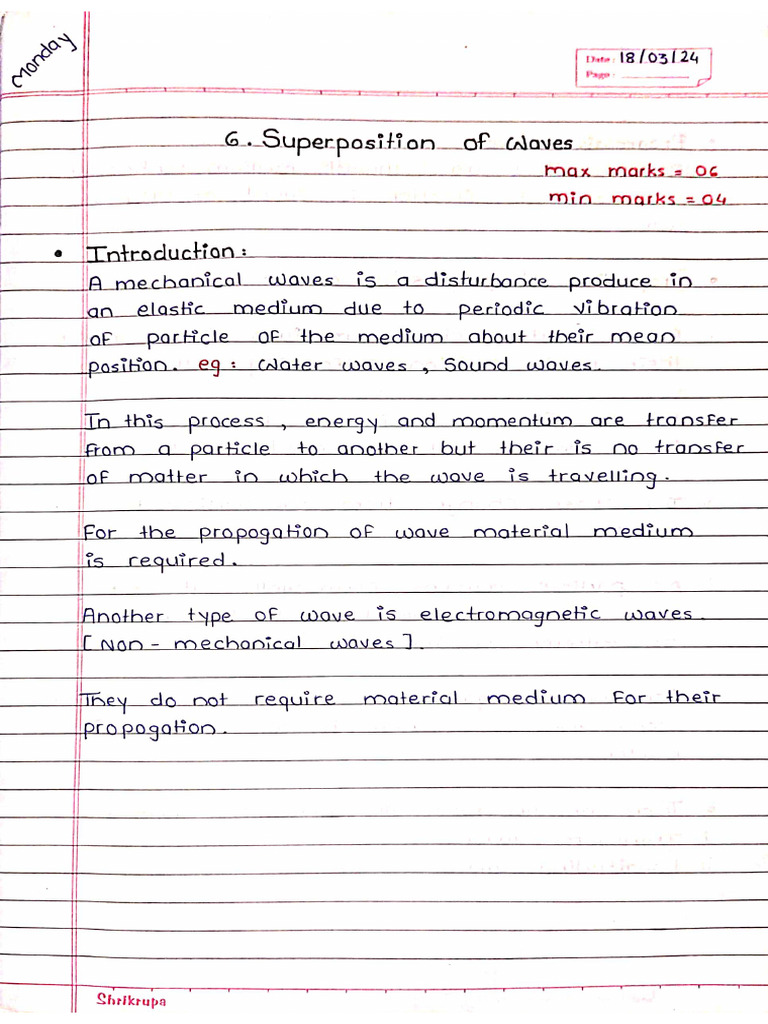 Monday
Date: 18/03/24
Page:
6. Superposition of Waves
max marks = 06
min marks = 04
• Introduction:
A mechanical waves is a disturbance produce in
an elastic medium due to periodic vibration
of particle of the medium about their mean
position. eg: Water waves, Sound waves.
In this process, energy and momentum are transfer
from a particle to another but their is no transfer
of matter in which the wave is travelling.
For the propogation of wave material medium
is required.
Another type of wave is electromagnetic waves.
[Non-mechanical waves].
They do not require material medium for their
propogation.
Shrikrupa